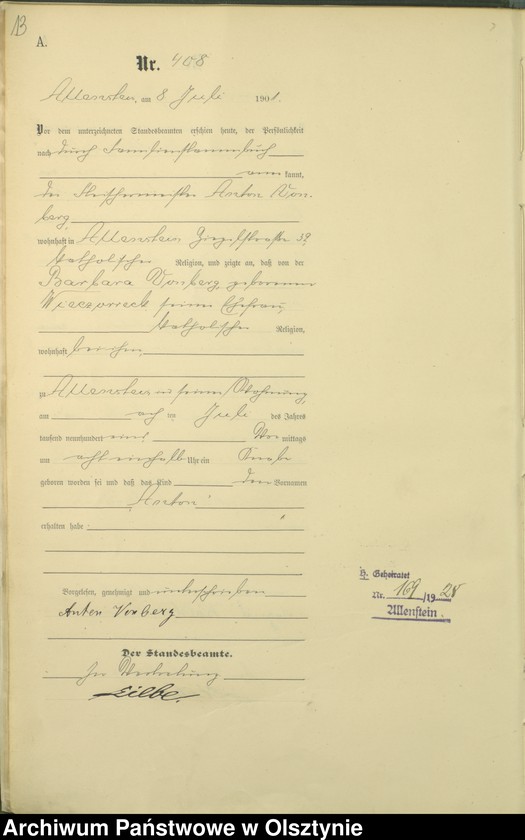 13
A.
Nr. 408
Allenstein, am 8 Juli 1901.
Vor dem unterzeichneten Standesbeamten erschien heute, der Persönlichkeit
nach durch Familienstammbuch
kannt,
der Fleischermeister Anton Von-
berg
wohnhaft in Allenstein Ziegelstraße
katholischer Religion, und zeigte an, daß von der
Barbara Vonberg, geborenen
Wieczorreck seiner Ehefrau,
katholischer Religion,
wohnhaft bei ihm
zu Allenstein in seiner Wohnung
am acht ten Juli des Jahres
tausend neunhundert eins Vor mittags
um acht einhalb Uhr ein Knabe
geboren worden sei und daß das Kind den Vornamen
Anton
erhalten habe
Vorgelesen, genehmigt und unterschrieben
Anton Vonberg
Der Standesbeamte.
In Vertretung
H. Geheiratet
Nr. 169/1928
Allenstein.
Archiwum Państwowe w Olsztynie